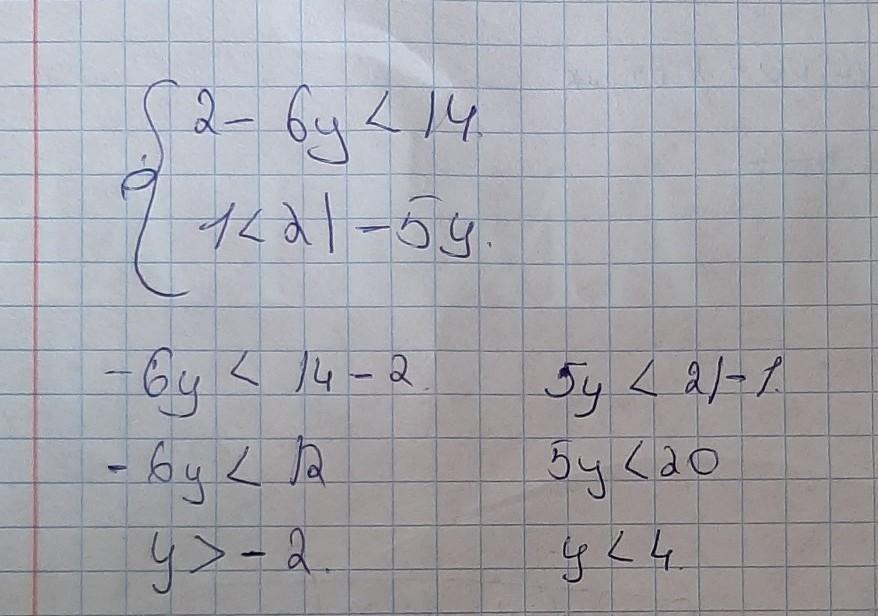 2 - 6y < 14.
1 < 21 - 5y.
-6y < 14 - 2. 5y < 21 - 1.
-6y < 12 5y < 20
y > -2. y < 4.